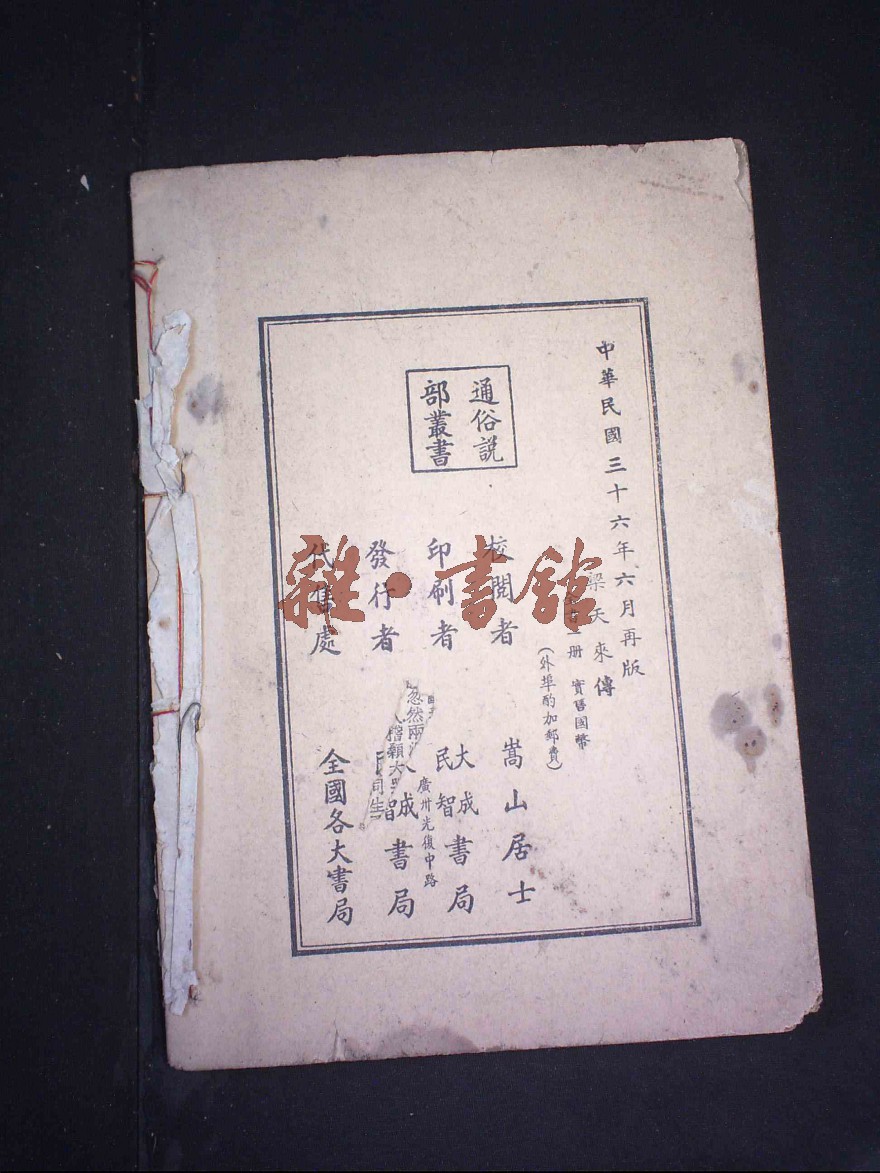 中華民國三十六年六月再版
梁天來傳
一册 實售國幣
(外埠酌加郵費)
通俗説
部叢書
校閱者 嵩山居士
印刷者 大成 民智 書局
廣州光復中路
發行者 成 智 書局
代售處 全國各大書局
忽然兩
人稽顙大
同生
雜·書館